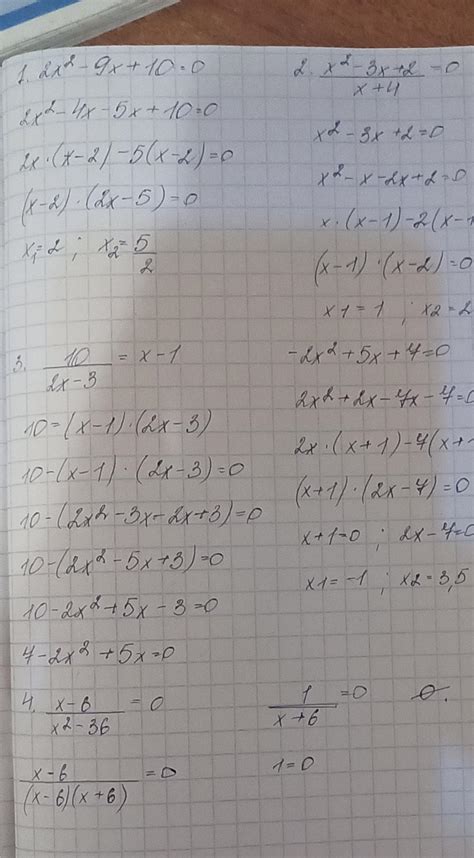 1. 2x² - 9x + 10 = 0
2x² - 4x - 5x + 10 = 0
2x · (x - 2) - 5(x - 2) = 0
(x - 2) · (2x - 5) = 0
x₁ = 2 ; x₂ = 5/2
2. (x² - 3x + 2)/(x + 4) = 0
x² - 3x + 2 = 0
x² - x - 2x + 2 = 0
x · (x - 1) - 2(x - 1
(x - 1) · (x - 2) = 0
x1 = 1 ; x2 = 2
3. 10/(2x - 3) = x - 1
10 = (x - 1) · (2x - 3)
10 - (x - 1) · (2x - 3) = 0
10 - (2x² - 3x - 2x + 3) = 0
10 - (2x² - 5x + 3) = 0
10 - 2x² + 5x - 3 = 0
7 - 2x² + 5x = 0
-2x² + 5x + 7 = 0
2x² + 2x - 7x - 7 = 0
2x · (x + 1) - 7(x +
(x + 1) · (2x - 7) = 0
x + 1 = 0 ; 2x - 7 = 0
x1 = -1 ; x2 = 3,5
4. (x - 6)/(x² - 36) = 0
(x - 6)/((x - 6)(x + 6)) = 0
1/(x + 6) = 0
1 = 0
∅.